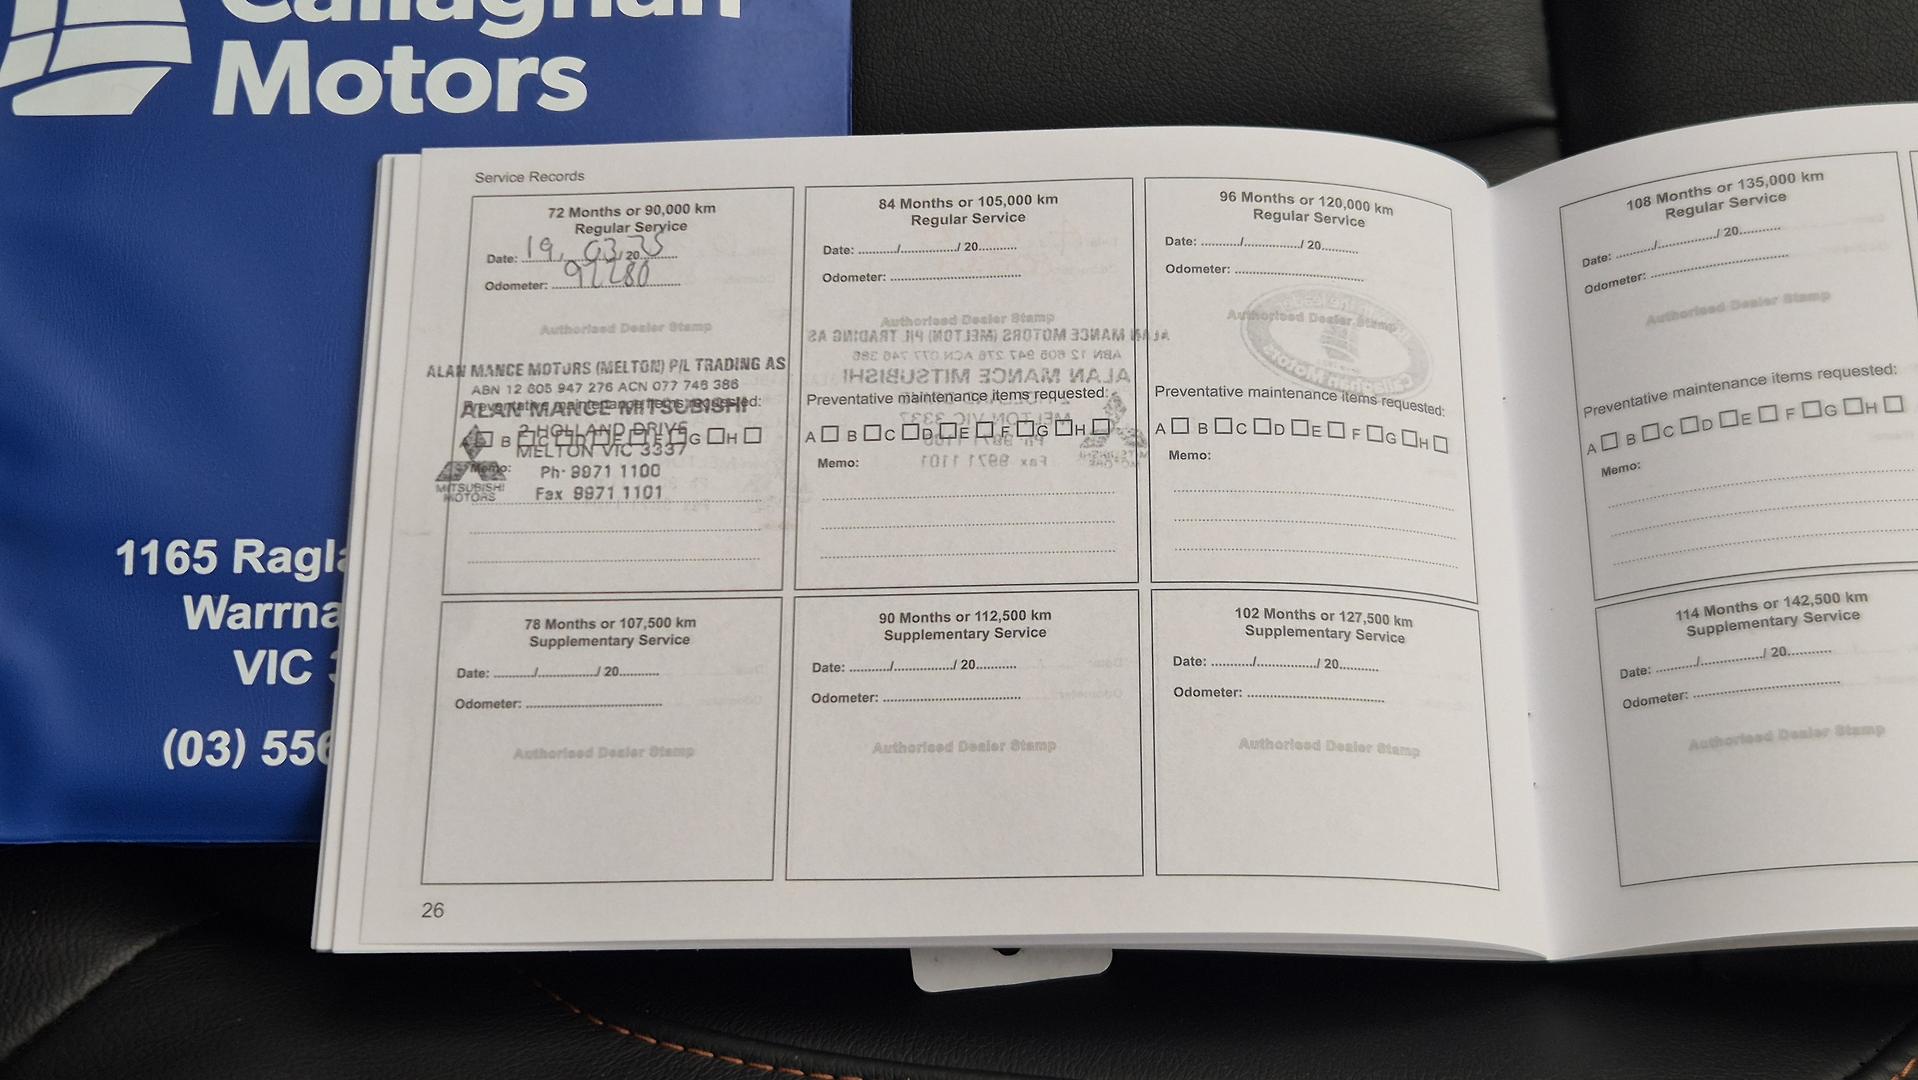 Callaghan
Motors
1165 Ragla
Warrna
VIC 3
(03) 556
Service Records
72 Months or 90,000 km
Regular Service
Date: 19, 03, 2025
Odometer: 97280
Authorised Dealer Stamp
ALAN MANCE MOTORS (MELTON) P/L TRADING AS
ABN 12 605 947 276 ACN 077 746 386
ALAN MANCE MITSUBISHI
Preventative maintenance items requested:
2 HOLLAND DRIVE
A B C D E F G H
MELTON VIC 3337
Memo: Ph. 9971 1100
MITSUBISHI
MOTORS
Fax 9971 1101
84 Months or 105,000 km
Regular Service
Date: ........./................/ 20...........
Odometer: .....................................
Authorised Dealer Stamp
Preventative maintenance items requested:
A B C D E F G H
Memo:
96 Months or 120,000 km
Regular Service
Date: ........./................/ 20...........
Odometer: .....................................
Authorised Dealer Stamp
Preventative maintenance items requested:
A B C D E F G H
Memo:
108 Months or 135,000 km
Regular Service
Date: ........./................/ 20...........
Odometer: .....................................
Authorised Dealer Stamp
Preventative maintenance items requested:
A B C D E F G H
Memo:
78 Months or 107,500 km
Supplementary Service
Date: ........./................/ 20...........
Odometer: .....................................
Authorised Dealer Stamp
90 Months or 112,500 km
Supplementary Service
Date: ........./................/ 20...........
Odometer: .....................................
Authorised Dealer Stamp
102 Months or 127,500 km
Supplementary Service
Date: ........./................/ 20...........
Odometer: .....................................
Authorised Dealer Stamp
114 Months or 142,500 km
Supplementary Service
Date: ........./................/ 20...........
Odometer: .....................................
Authorised Dealer Stamp
26